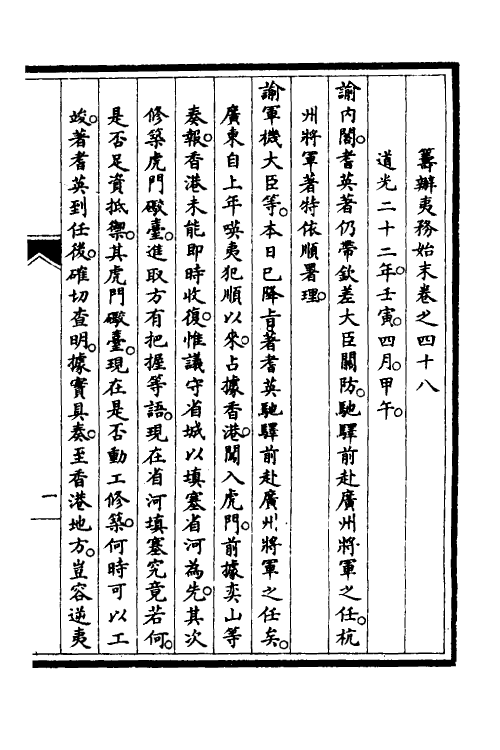 籌辦夷務始末卷之四十八
道光二十二年壬寅。四月。甲午。
諭內閣。耆英著仍帶欽差大臣關防。馳驛前赴廣州將軍之任。杭
州將軍著特依順署理。
諭軍機大臣等。本日已降旨著耆英馳驛前赴廣州將軍之任矣。
廣東自上年㗸夷犯順以來。占據香港。闖入虎門。前據奕山等
奏報。香港未能即時收復。惟議守省城以填塞省河為先。其次
修築虎門礮臺。進取方有把握等語。現在省河填塞究竟若何。
是否足資抵禦。其虎門礮臺。現在是否動工修築。何時可以工
竣。著耆英到任後。確切查明。據實具奏。至香港地方。豈容逆夷
一